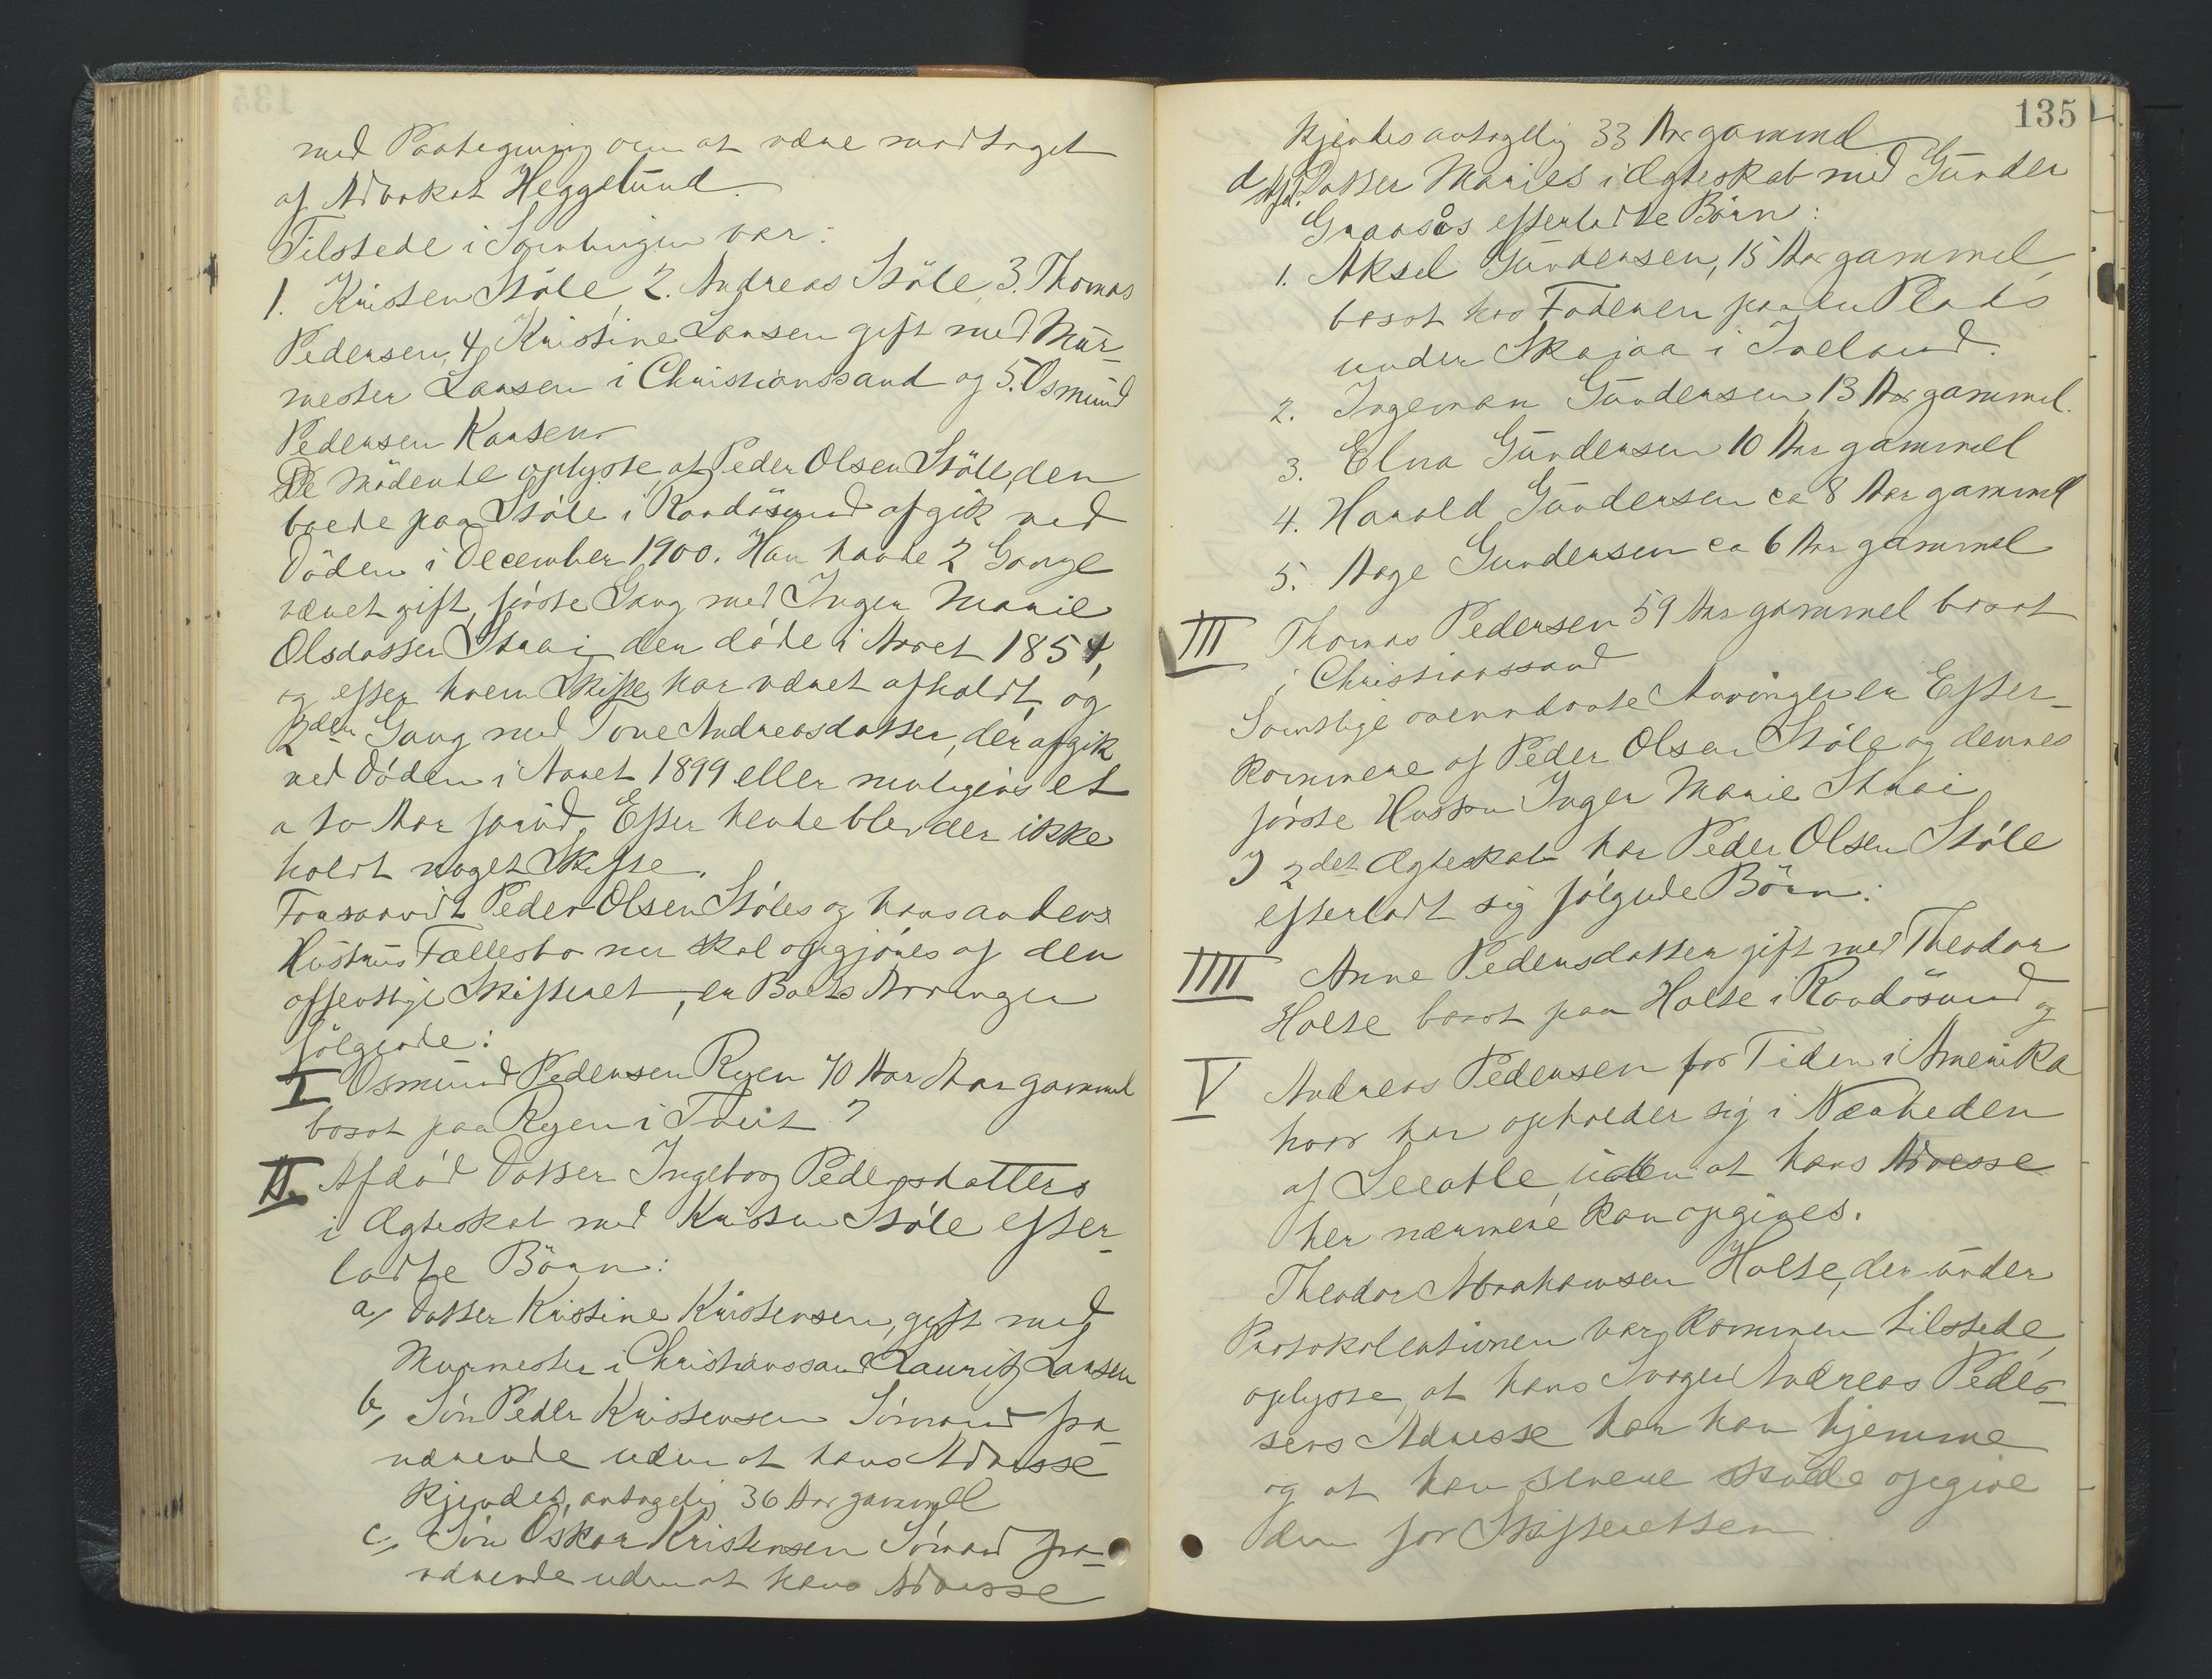 med Paategning om at være modtaget
af Advokat Heggelund.
Tilstede i Samlingen var:
1. Kristen Stöle, 2. Andreas Stöle, 3. Thomas
Pedersen, 4. Kristine Larsen gift med Mur-
mester Larsen i Christianssand og 5. Osmund
Pedersen
De mödende oplyste, at Peder Olsen Stöle, der
boede paa Stöle i Randösund afgik ved
Döden i December 1900. Han havde 2 Gange
været gift, förste Gang med Inger Marie
Olsdatter Strai der döde i Aaret 1854,
og efter hvem Skifte har været afholdt, og
2den Gang med Tone Andreasdatter, der afgik
ved Döden i Aaret 1899 eller muligens et
a to Aar forud. Efter hende blev der ikke
holdt noget Skifte.
Forsaavidt Peder Olsen Stöles og hans andens
Hustrus Fællesbo nu skal opgjöres af den
offentlige Skifteret, er Boets Arvinger
fölgende:
I Osmund Pedersen Ryen 70 Aar Aar gammel
bosat paa Ryen i Tveit ?
II. Afdöd Datter Ingeborg Pedersdatters
i Ægteskab med Kristen Stöle efter-
ladte Börn:
a, Datter Kristine Kristensen, gift med
Murmester i Christianssand Lauritz Larsen
b, Sön Peder Kristensen Sömand fra-
værende uden at hans Adresse
kjendes, antagelig 36 Aar gammel
c, Sön Oskar Kristensen Sömand fra-
værende uden at hans Adresse
135
kjendes antagelig 33 Aar gammel
d, Afd. Datter Maries i Ægteskab med Gunder
Graasås efterladte Börn:
1. Aksel Gundersen, 15 Aar gammel,
bosat hos Faderen paa en Plads
under Skajaa i Iveland.
2. Ingeman Gundersen 13 Aar gammel.
3. Elna Gundersen 10 Aar gammel
4. Harald Gundersen ca 8 Aar gammel
5. Aage Gundersen ca 6 Aar gammel
III Thomas Pedersen 59 Aar gammel bosat
i Christianssand
Samtlige ovennævnte Arvinger er Efter-
kommere af Peder Olsen Stöle og dennes
förste Hustru Inger Marie Straai
I 2det Ægteskab har Peder Olsen Stöle
efterladt sig fölgende Börn:
IIII Anne Pedersdatter gift med Theodor
Holte bosat paa Holte i Randösund og
V Andreas Pedersen for Tiden i Amerika
hvor han opholder sig i Nærheden
af Seeatle, uden at hans Adresse
her nærmere kan opgives.
Theodor Abrahamsen Holte, der under
Protokollationen var kommen tilstede,
oplyste, at hans Svoger Andreas Peder-
sens Adresse har han hjemme
og at han senere skulde opgive
den for Skifteretten.